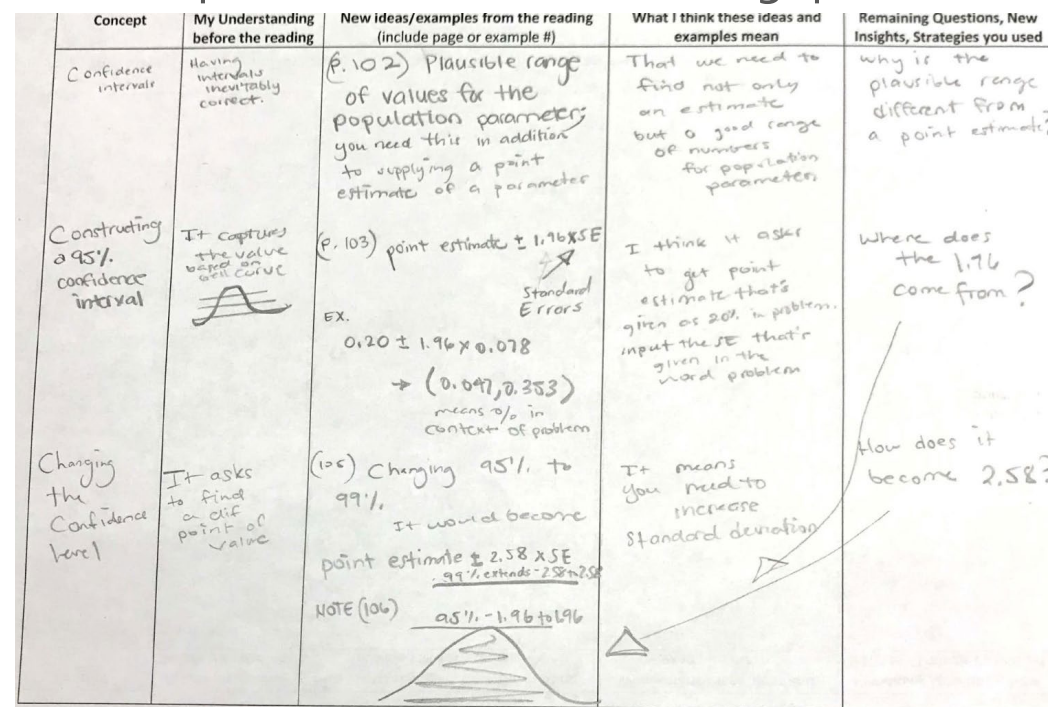 Concept
My Understanding
before the reading
New ideas/examples from the reading
(include page or example #)
What I think these ideas and
examples mean
Remaining Questions, New
Insights, Strategies you used
Confidence
intervals
Having
intervals
inevitably
correct.
(P. 102) Plausible range
of values for the
population parameter;
you need this in addition
to supplying a point
estimate of a parameter
That we need to
find not only
an estimate
but a good range
of numbers
for population
parameters
why is the
plausible range
different from
a point estimate?
Constructing
a 95%
confidence
interval
It captures
the value
based on
bell curve
(P. 103) point estimate ± 1.96 x SE
Standard
Errors
EX.
0.20 ± 1.96 x 0.078
→ (0.047, 0.353)
means % in
context of problem
I think it asks
to get point
estimate that's
given as 20% in problem.
input the SE that's
given in the
word problem
Where does
the 1.96
come from?
Changing
the
Confidence
level
It asks
to find
a dif
point of
value
(105) Changing 95% to
99%.
It would become
point estimate ± 2.58 x SE
99% extends -2.58 to 2.58
NOTE (106)
95% -1.96 to 1.96
It means
you need to
increase
Standard deviation
How does it
become 2.58?